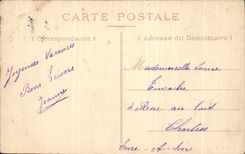 CARTE POSTALE
(Correspondance)
(Adresse du Destinataire)
Joyeuses Vacances
Bons baisers
Jeanne
Mademoiselle Louise
Rue au Lait
Chartres
Eure-et-Loir